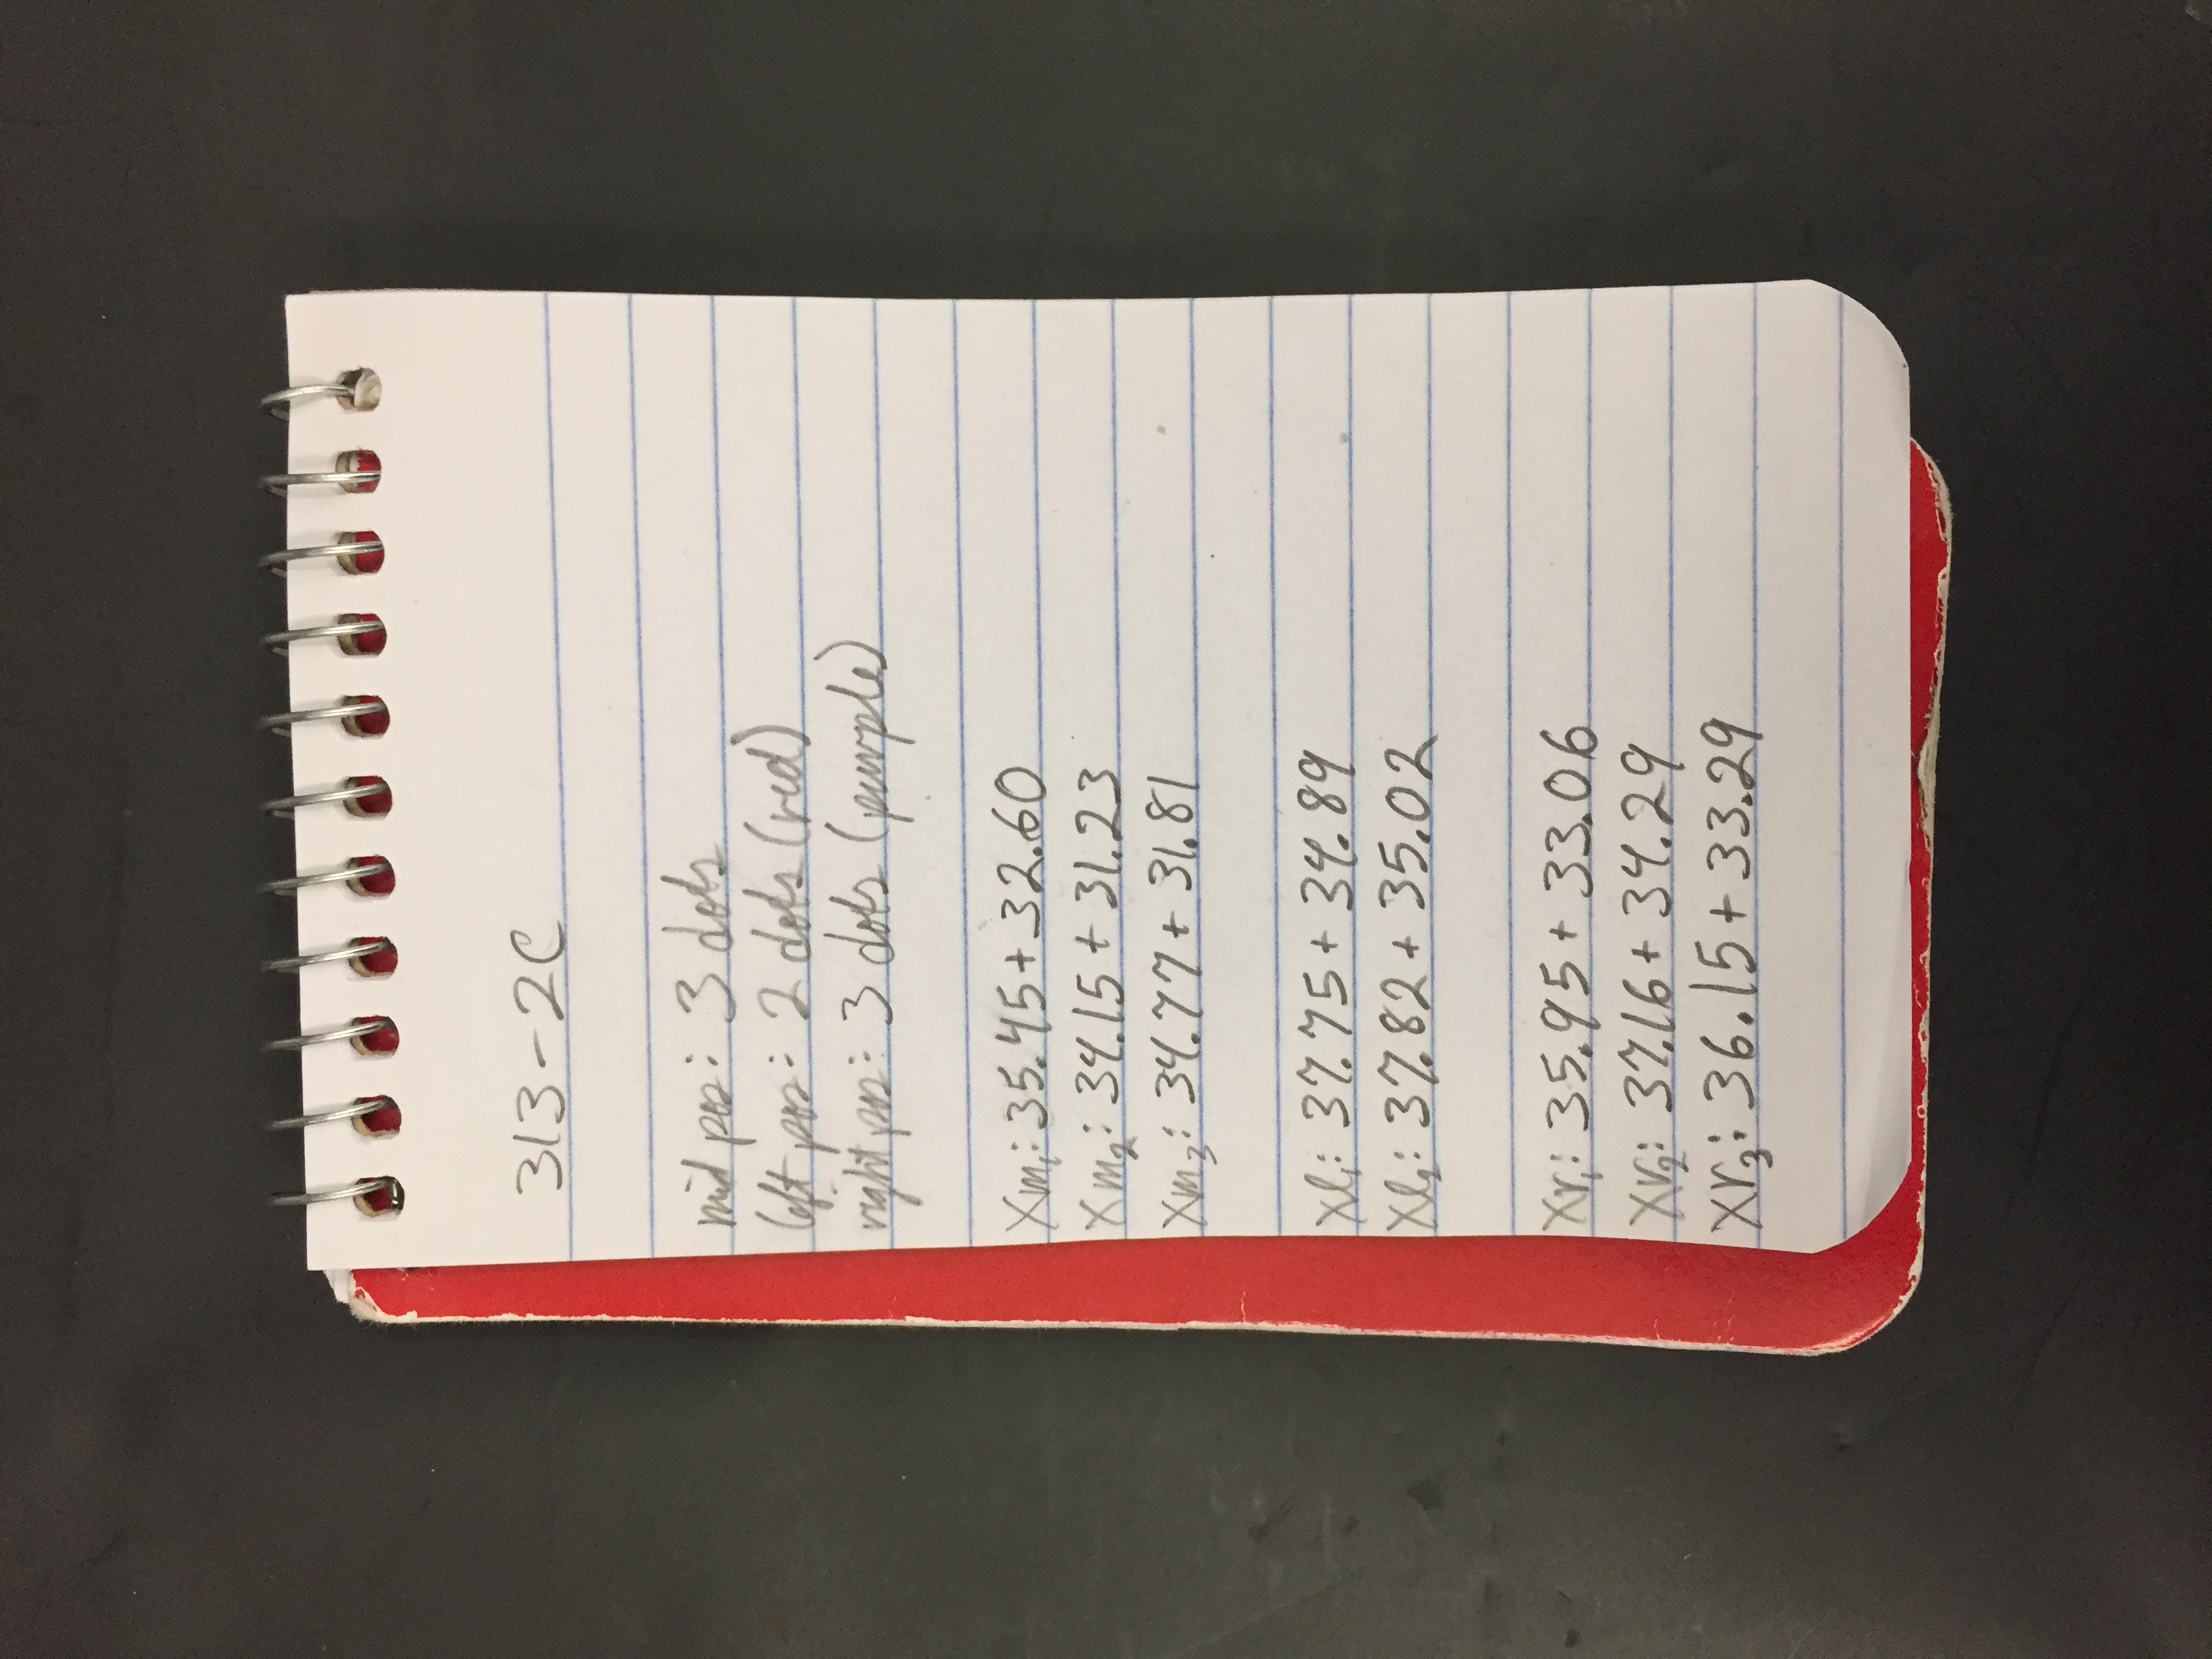 313-2C
mid pos: 3 dots
left pos: 2 dots (red)
right pos: 3 dots (purple)
Xm₁: 35.45 + 32.60
Xm₂: 34.15 + 31.23
Xm₃: 34.77 + 31.81
Xl₁: 37.75 + 34.89
Xl₂: 37.82 + 35.02
Xr₁: 35.95 + 33.06
Xr₂: 37.16 + 34.29
Xr₃: 36.15 + 33.29